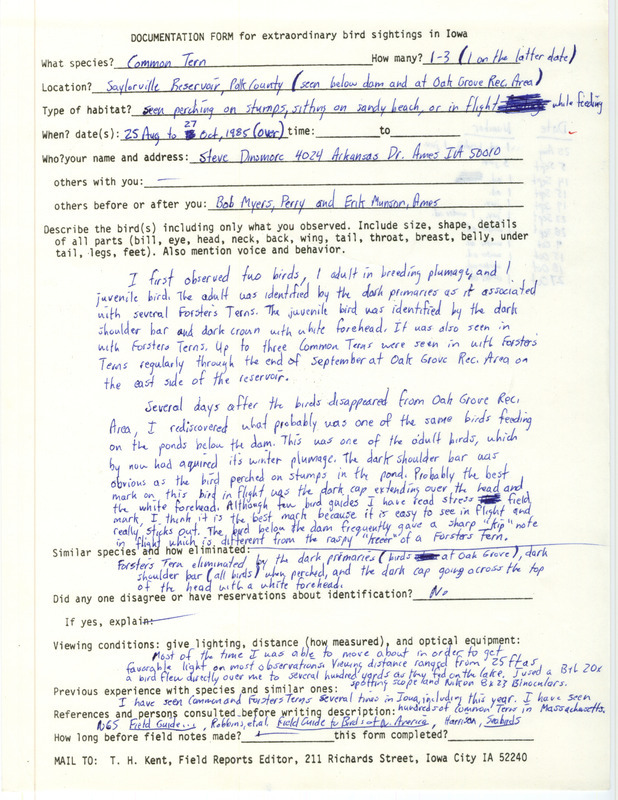 DOCUMENTATION FORM for extraordinary bird sightings in Iowa
What species? Common Tern How many? 1-3 (1 on the latter date)
Location? Saylorville Reservoir, Polk County (seen below dam and at Oak Grove Rec. Area)
Type of habitat? seen perching on stumps, sitting on sandy beach, or in flight while feeding
When? date(s): 25 Aug to 27 Oct, 1985 (over) time: to
Who? your name and address: Steve Dinsmore 4024 Arkansas Dr. Ames IA 50010
others with you: —
others before or after you: Bob Myers, Perry and Erik Munson, Ames
Describe the bird(s) including only what you observed. Include size, shape, details
of all parts (bill, eye, head, neck, back, wing, tail, throat, breast, belly, under
tail, legs, feet). Also mention voice and behavior.
I first observed two birds, 1 adult in breeding plumage, and 1
juvenile bird. The adult was identified by the dark primaries as it associated
with several Forster's Terns. The juvenile bird was identified by the dark
shoulder bar and dark crown with white forehead. It was also seen in
with Forsters Terns. Up to three Common Terns were seen in with Forster's
Terns regularly through the end of September at Oak Grove Rec. Area on
the east side of the reservoir.
Several days after the birds disappeared from Oak Grove Rec.
Area, I rediscovered what probably was one of the same birds feeding
on the ponds below the dam. This was one of the adult birds, which
by now had aquired it's winter plumage. The dark shoulder bar was
obvious as the bird perched on stumps in the pond. Probably the best
mark on this bird in flight was the dark cap extending over the head and
the white forehead. Although few bird guides I have read stress field
mark, I think it is the best mark because it is easy to see in flight and
really sticks out. The bird below the dam frequently gave a sharp "kip" note
in flight which is different from the raspy "keer" of a Forsters tern.
Similar species and how eliminated:
Forsters Tern eliminated by the dark primaries (birds at Oak Grove), dark
shoulder bar (all birds) when perched, and the dark cap going across the top
of the head with a white forehead.
Did any one disagree or have reservations about identification? No
If yes, explain: —
Viewing conditions: give lighting, distance (how measured), and optical equipment:
Most of the time I was able to move about in order to get
favorable light on most observations. Viewing distance ranged from 25 ft as
a bird flew directly over me to several hundred yards as they fed on the lake. I used a B+L 20x
spotting scope and Nikon 8x27 Binoculars.
Previous experience with species and similar ones:
I have seen Common and Forsters Terns several times in Iowa, including this year. I have seen
hundreds of Common Terns in Massachusetts.
References and persons consulted before writing description:
NGS Field Guide..., Robbins, et al. Field Guide to Birds of N. America, Harrison, Seabirds
How long before field notes made? this form completed?
MAIL TO: T. H. Kent, Field Reports Editor, 211 Richards Street, Iowa City IA 52240